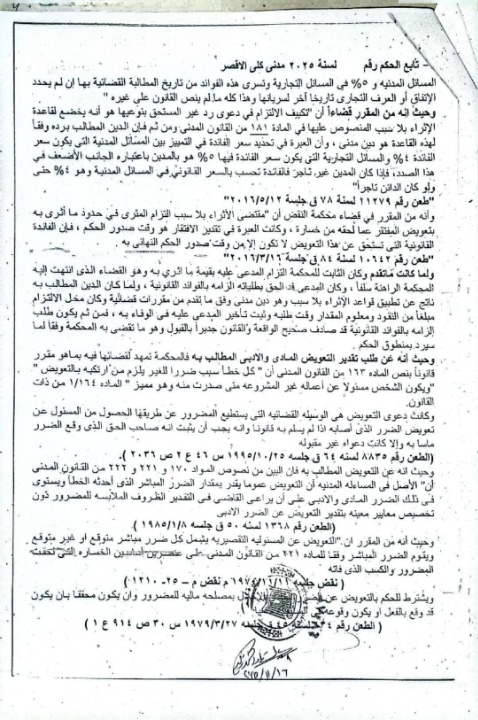 - تابع الحكم رقم لسنة ٢٠٢٥ مدنى كلى الاقصر
المسائل المدنيه و ٥% فى المسائل التجارية وتسرى هذه الفوائد من تاريخ المطالبة القضائية بها إن لم يحدد
الإتفاق أو العرف التجارى تاريخا آخر لسريانها وهذا كله ما لم ينص القانون علي غيره "
وحيث إنه من المقرر قضاءاً أن "تكييف الالتزام في دعوى رد غير المستحق بنوعيها هو أنه يخضع لقاعدة
الإثراء بلا سبب المنصوص عليها في المادة ١٨١ من القانون المدني ومن ثم فإن الدين المطالب برده وفقاً
لهذه القاعدة هو دين مدني ، وأن العبرة في تحديد سعر الفائدة في التمييز بين المسائل المدنية التي يكون سعر
الفائدة ٤% والمسائل التجارية التي يكون سعر الفائدة فيها ٥% هو بالمدين باعتباره الجانب الأضعف في
هذا الصدد، فإذا كان المدين غير تاجر فالفائدة تحسب بالسعر القانوني في المسائل المدنية وهو ٤% حتى
ولو كان الدائن تاجراً"
"طعن رقم ١١٢٧٩ لسنة ٧٨ ق جلسة ٢٠١٦/٥/١٢"
وأنه من المقرر في قضاء محكمة النقض أن "مقتضى الأثراء بلا سبب التزام المثرى في حدود ما أثرى به
بتعويض المفتقر عما لحقه من خسارة ، وكانت العبرة في تقدير الافتقار هو وقت صدور الحكم ، فإن الفائدة
القانونية التى تستحق عن هذا التعويض لا تكون إلا من وقت صدور الحكم النهائى به "
"طعن رقم ١٠٦٤٢ لسنة ٨٤ ق جلسة ٢٠١٦/٣/١٦"
ولما كانت ماتقدم وكان الثابت للمحكمة التزام المدعى عليه بقيمة ما اثري به وهو القضاء الذى انتهت إليه
المحكمة الراهنة سلفاً ، وكان المدعى قد الحق بطلباته الزامه بالفوائد القانونية ، ولما كان الدين المطالب به
ناتج عن تطبيق قواعد الإثراء بلا سبب وهو دين مدنى وفق ما تقدم من مقررات قضائية وكان محل الالتزام
مبلغا من النقود ومعلوم المقدار وقت طلبه وثبت تأخير المدعى عليه في الوفاء به ، فمن ثم يكون طلب
الزامه بالفوائد القانونية قد صادف صحيح الواقعة والقانون جديراً بالقبول وهو ما تقضى به المحكمة وفقا لما
سيرد بمنطوق الحكم.
وحيث أنه عن طلب تقدير التعويض المادى والادبى المطالب به فالمحكمة تمهد لقضائها فيه بماهو مقرر
قانوناً بنص الماده ١٦٣ من القانون المدنى أن " كل خطأ سبب ضررا للغير يلزم من ارتكبه بالتعويض "
"ويكون الشخص مسئولا عن أعماله غير المشروعه متى صدرت منه وهو مميز " الماده ١/١٦٤ من ذات
القانون.
وكانت دعوى التعويض هى الوسيله القضائيه التى يستطيع المضرور عن طريقها الحصول من المسئول عن
تعويض الضرر الذى أصابه اذا لم يسلم به قانونا وانه يجب أن يثبت انه صاحب الحق الذى وقع الضرر
ماسا به وإلا كانت دعواه غير مقبوله
(الطعن رقم ٨٨٣٥ لسنة ٦٤ ق جلسه ١٩٩٥/١٠/٢٥ س ٤٦ ع ٢ ص ٢٠٣٦)
وحيث انه عن التعويض المطالب به فان البين من نصوص المواد ١٧٠ و ٢٢١ و ٢٢٢ من القانون المدنى
أن "الأصل فى المساءله المدنيه أن التعويض عموما يقدر بمقدار الضرر المباشر الذى أحدثه الخطأ ويستوى
فى ذلك الضرر المادى والادبى على أن يراعى القاضى فى التقدير الظروف الملابسه للمضرور دون
تخصيص معايير معينه بتقدير التعويض عن الضرر الادبى
(الطعن رقم ١٣٦٨ لسنه ٥٠ ق جلسه ١٩٨٥/١/٨)
وحيث أنه من المقرر ان "التعويض عن المسئوليه التقصيريه يشمل كل ضرر مباشر متوقع او غير متوقع
ويقوم الضرر المباشر وفقا للماده ٢٢١ من القانون المدنى على عنصرين أساسين الخساره التى لحقت
المضرور والكسب الذى فاته
( نقض جلسه ١١/١١/ نقض م - ٢٥ - ١٢١٠ )
ويشترط للحكم بالتعويض عن الضرر بمصلحه ماليه للمضرور وان يكون محققا بان يكون
قد وقع بالفعل او يكون وقوعه
( الطعن رقم لسنه ٤٥ ق جلسه ١٩٧٩/٣/٢٧ س ٣٠ ص ٩١٤ ع ١ )